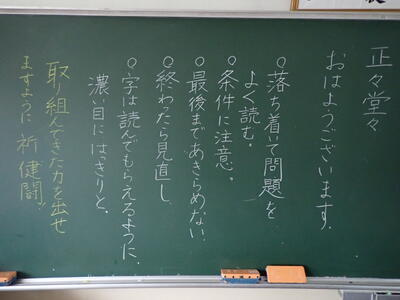 正々堂々
おはようございます。
○落ち着いて問題を
よく読む。
○条件に注意。
○最後まであきらめない
○終わったら見直し
○字は読んでもらえるように、
濃い目にはっきりと。
取り組んできた力を出せ
ますように 祈 健闘!